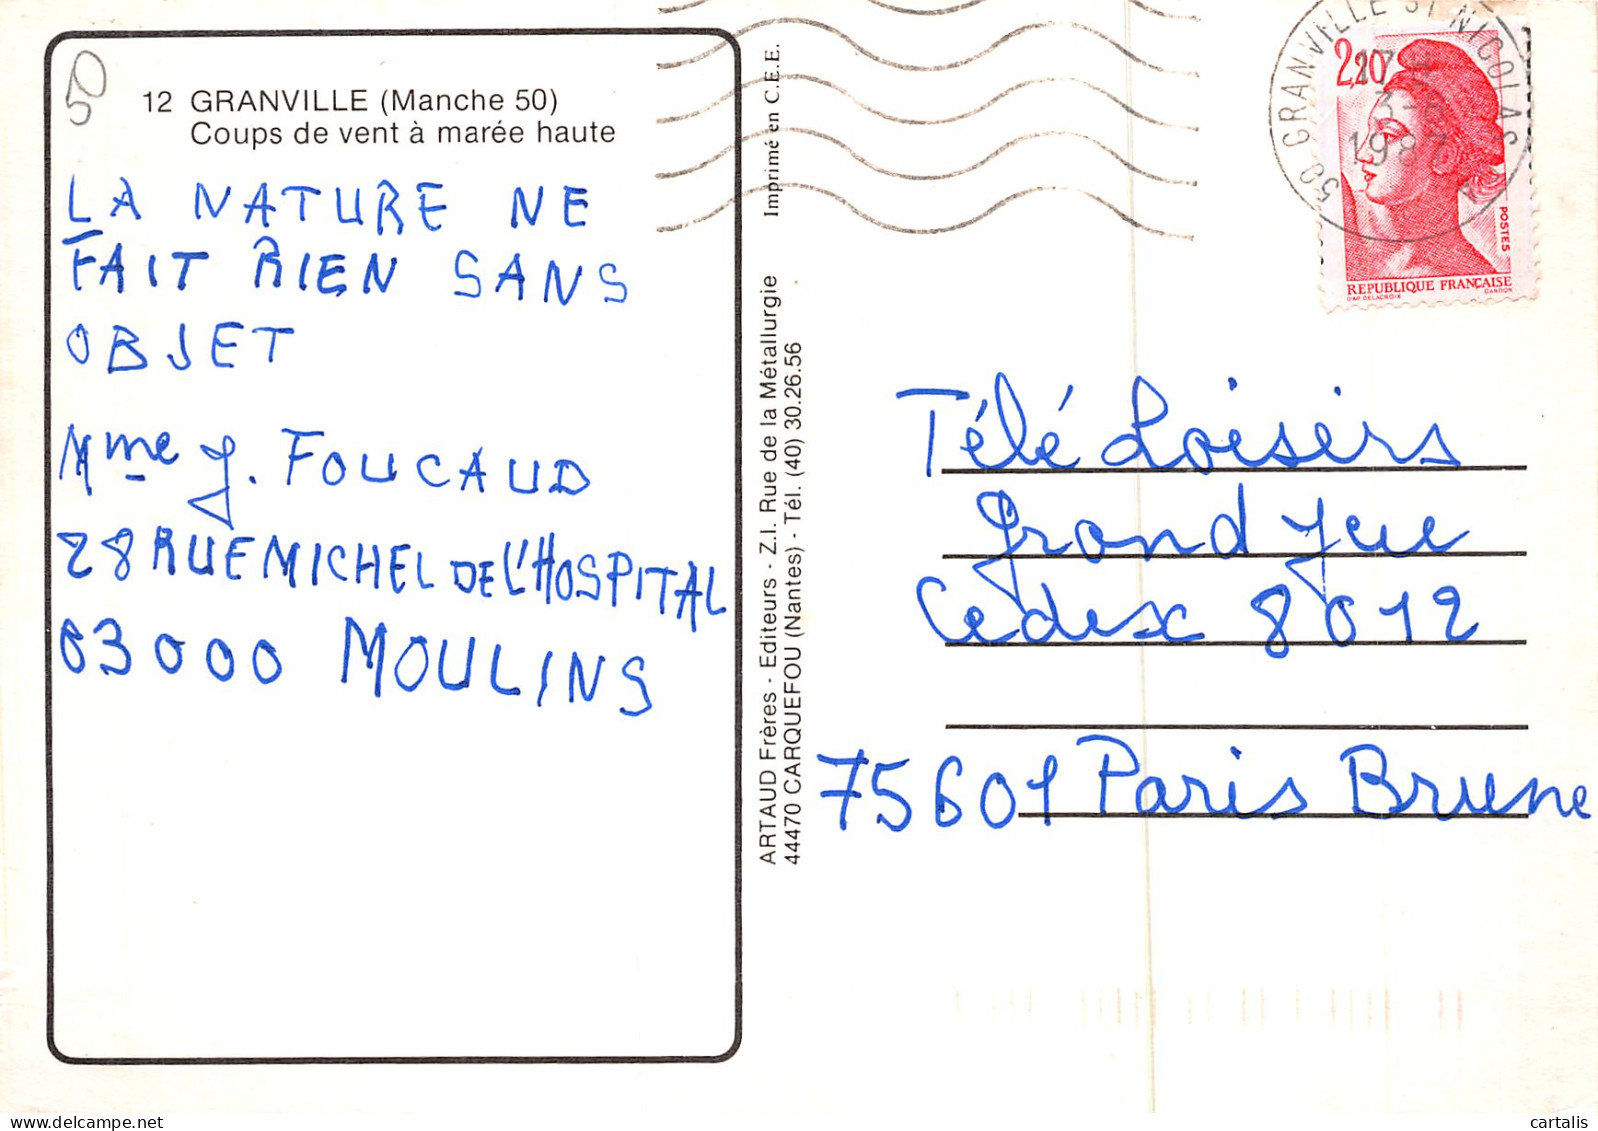 50
12 GRANVILLE (Manche 50)
Coups de vent à marée haute
LA NATURE NE
FAIT RIEN SANS
OBJET
Mme J. FOUCAUD
28 RUE MICHEL DE L'HOSPITAL
03000 MOULINS
ARTAUD Frères - Editeurs - Z.I. Rue de la Métallurgie
44470 CARQUEFOU (Nantes) - Tél. (40) 30.26.56
Imprimé en C.E.E.
50 GRANVILLE ST NICOLAS
1987
2,20
POSTES
REPUBLIQUE FRANÇAISE
D'AP. DELACROIX
GANDON
Télé Loisirs
Grand Jeu
Cedex 8012
75601 Paris Brune
cartalis